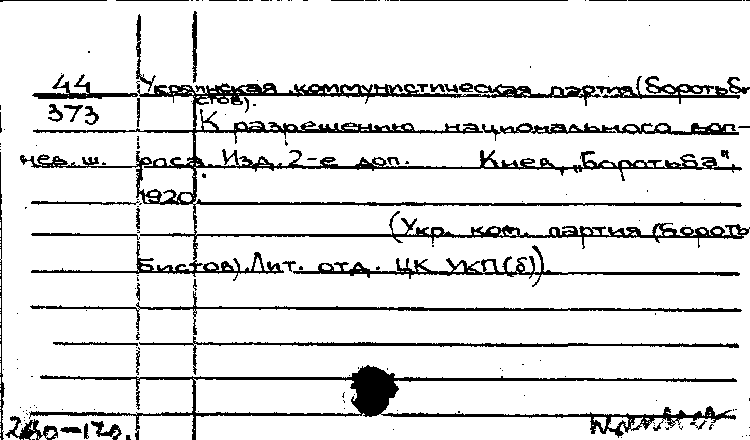 44 Украинская коммунистическая партия (боротьби-
стов).
373 К разрешению национального воп-
нев. ш. роса. Изд. 2-е доп. Киев, „Боротьба",
1920.
(Укр. ком. партия (Бороть-
бистов). Лит. отд. ЦК УКП(б)).